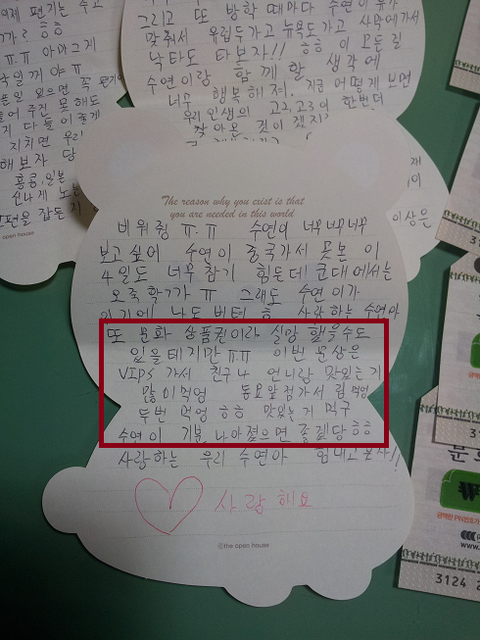 이제 편지는 수
ㅠㅠ 아마그게
그리고 또 방학 때마다 수연이 휴가
맞춰서 유럽두가고 뉴욕도가고 사막에가서
낙타도 타보자!! ㅎㅎ 이 모든걸
수연이랑 함께 할 생각에
너무 행복해져. 지금 어떻게 보면
우리 인생의 고2,고3이 한번더
찾아온 것이 겠지?
지치면 우리
해보자 당
홍콩, 일본
신나게 노는
open house
이상은
The reason why you exist is that
you are needed in this world
비워줭 ㅠ.ㅠ 수연이 너무 너무 너무
보고 싶어 수연이 중국가서 못본 이
4일도 너무 참기 힘든데 군대에서는
오죽 할까가 ㅠ 그래도 수연이가
있기에 나도 버텨 ㅎ 사랑하는 수연아
또 문화 상품권이라 실망 했을수도
있을테지만 ㅠㅠ 이번 목상은
VIPS 가서 친구나 언니랑 맛있는거
많이먹엉 동묘앞점가서 립먹엉
두번 먹엉 ㅎㅎ 맛있는거 먹구
수연이 기분 나아졌으면 좋겠당 ㅎㅎ
사랑하는 우리 수연아 힘내고 보자!!
사랑해요
©the open house
3124 2